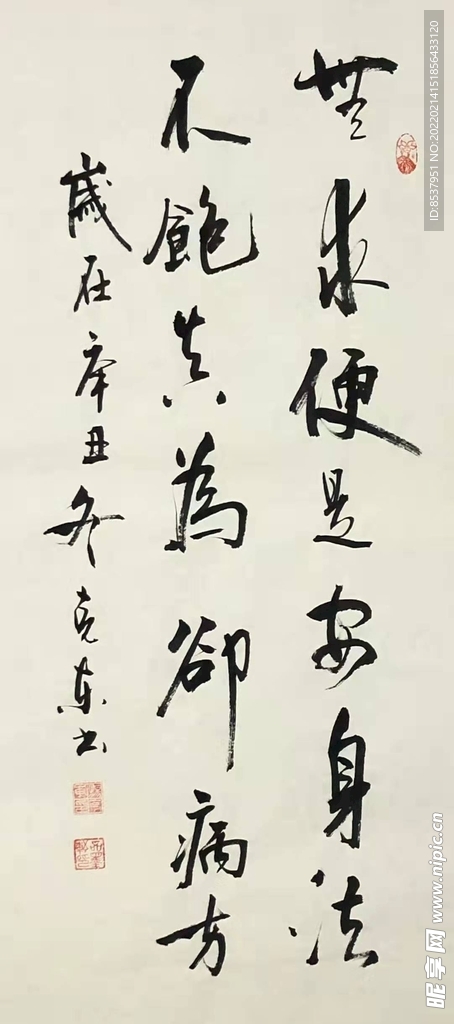 無求便是安身法
不飽真為卻病方
歲在辛丑冬克東书
ID:8537951 NO:20220214151856433120
昵享网 www.nipic.cn